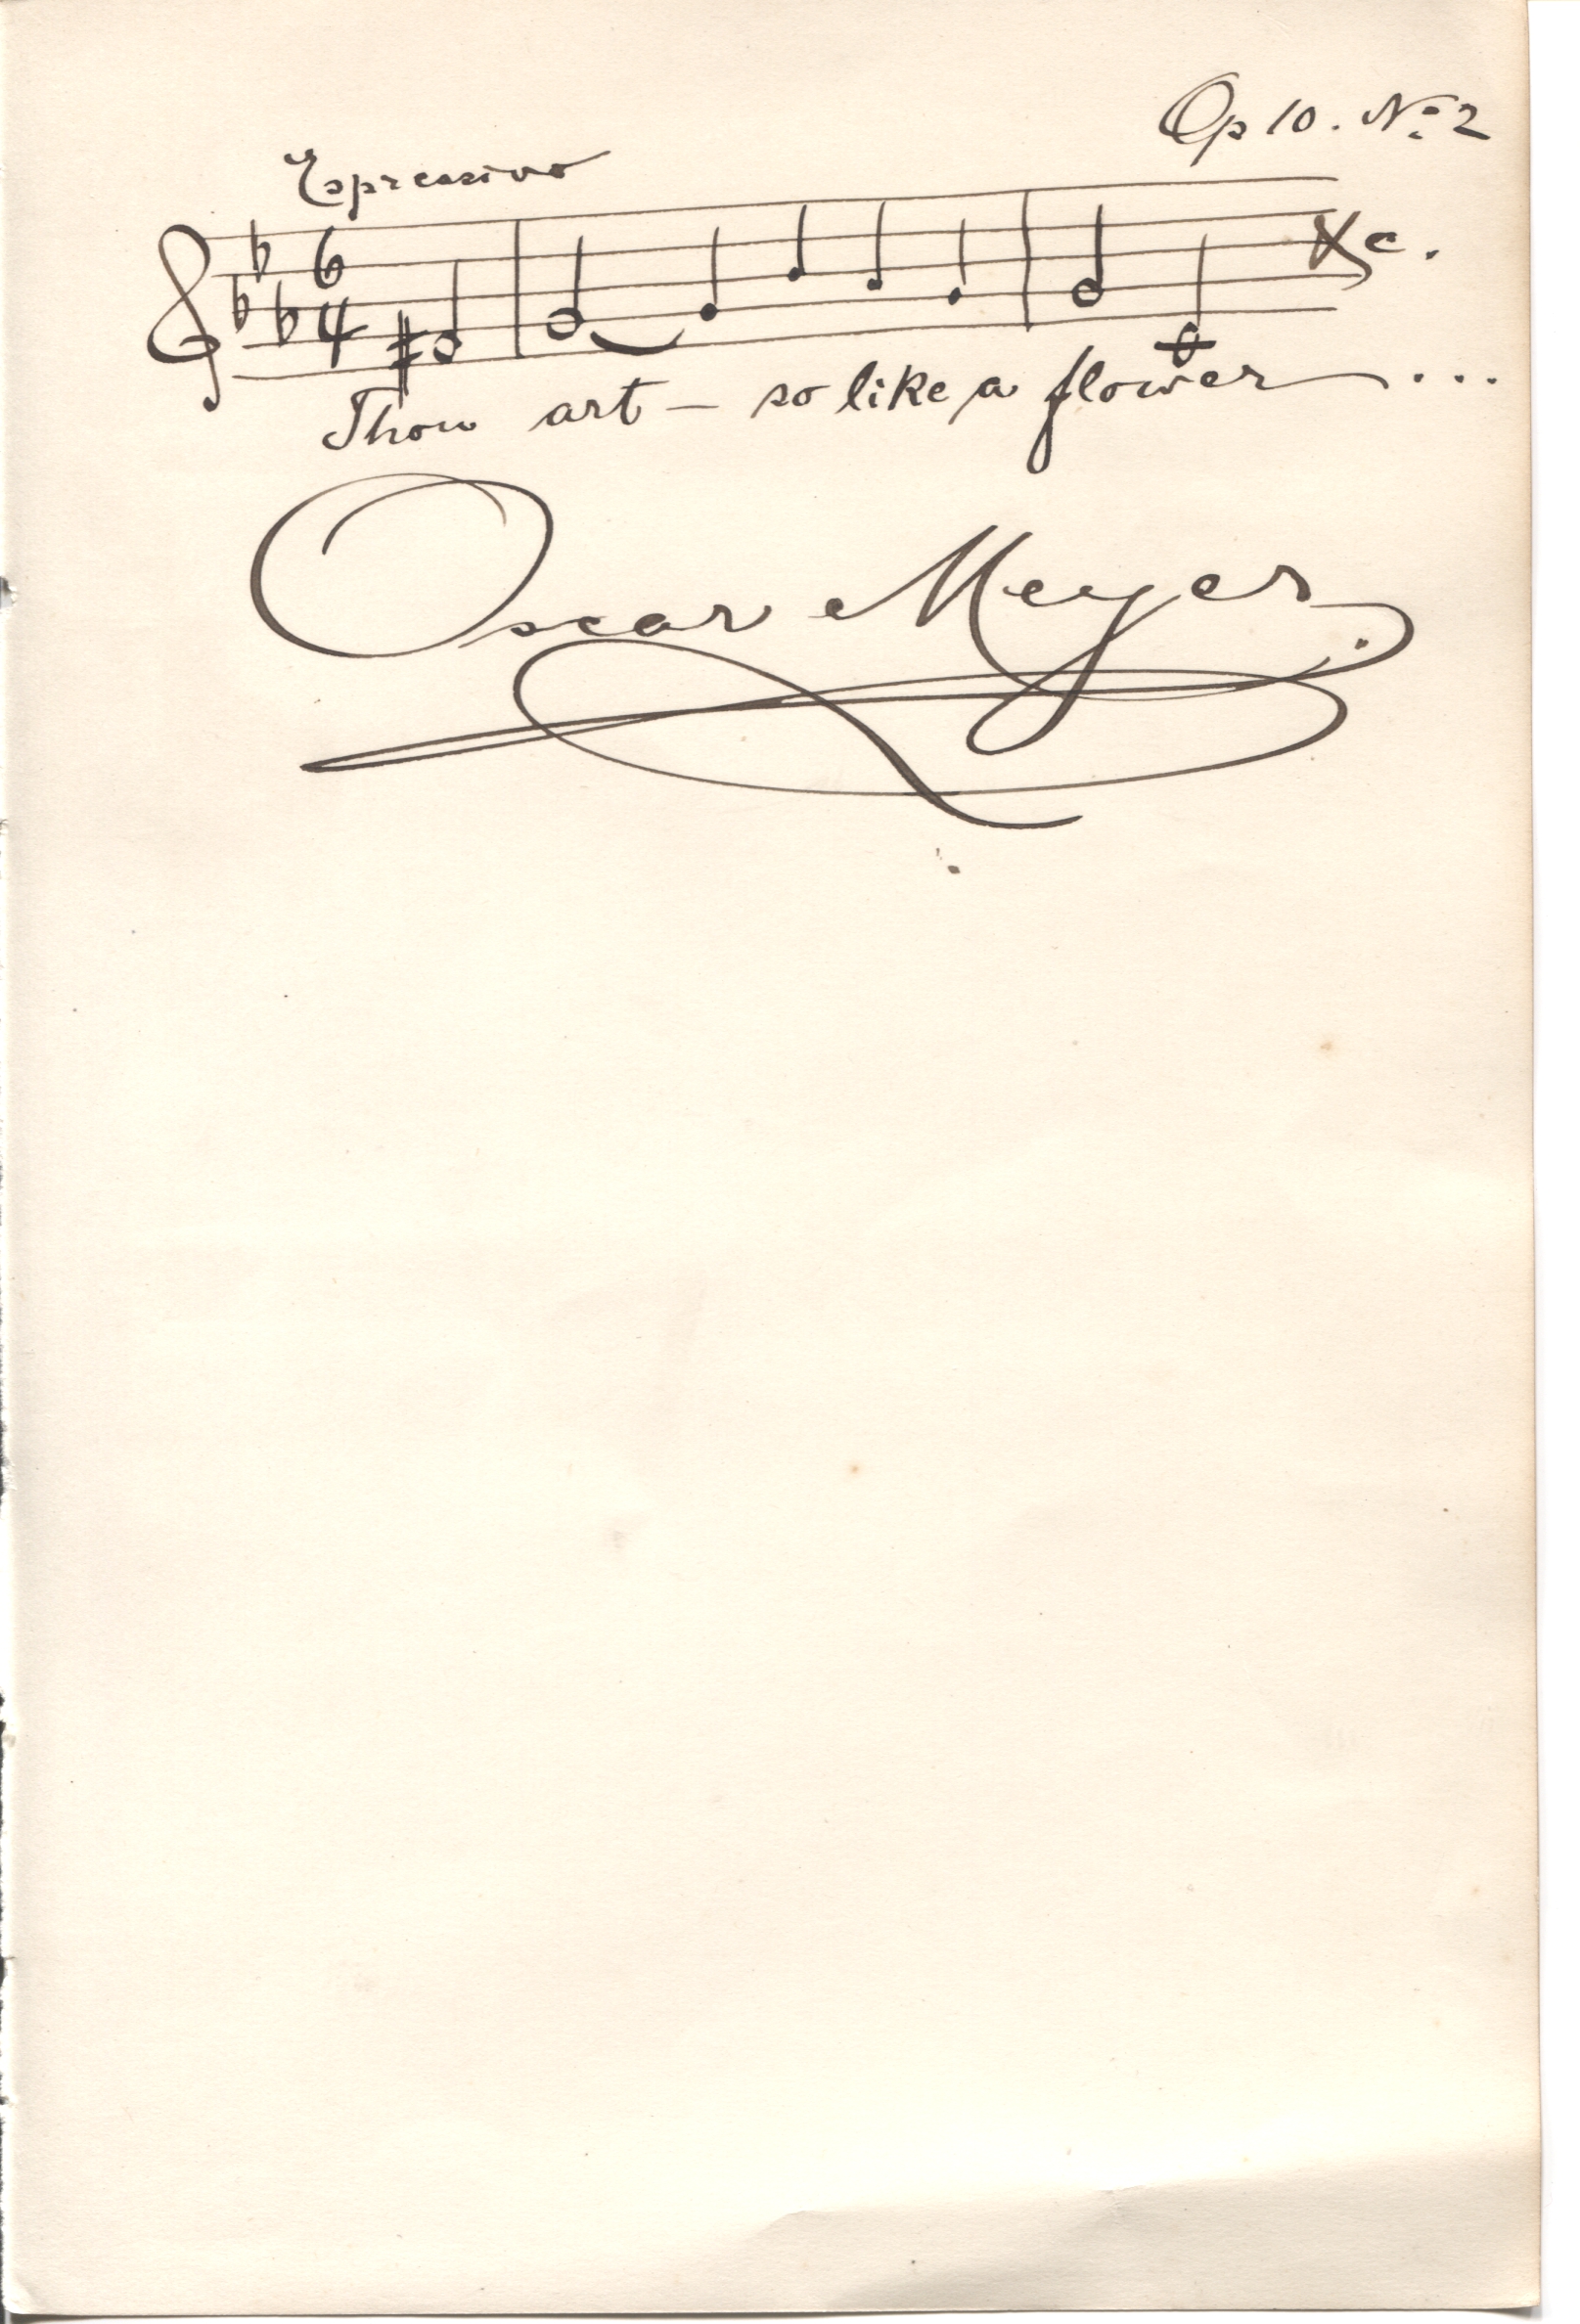 Op 10. No 2
Espressivo
6
4
&c.
Thou art — so like a flower ...
Oscar Meyer.